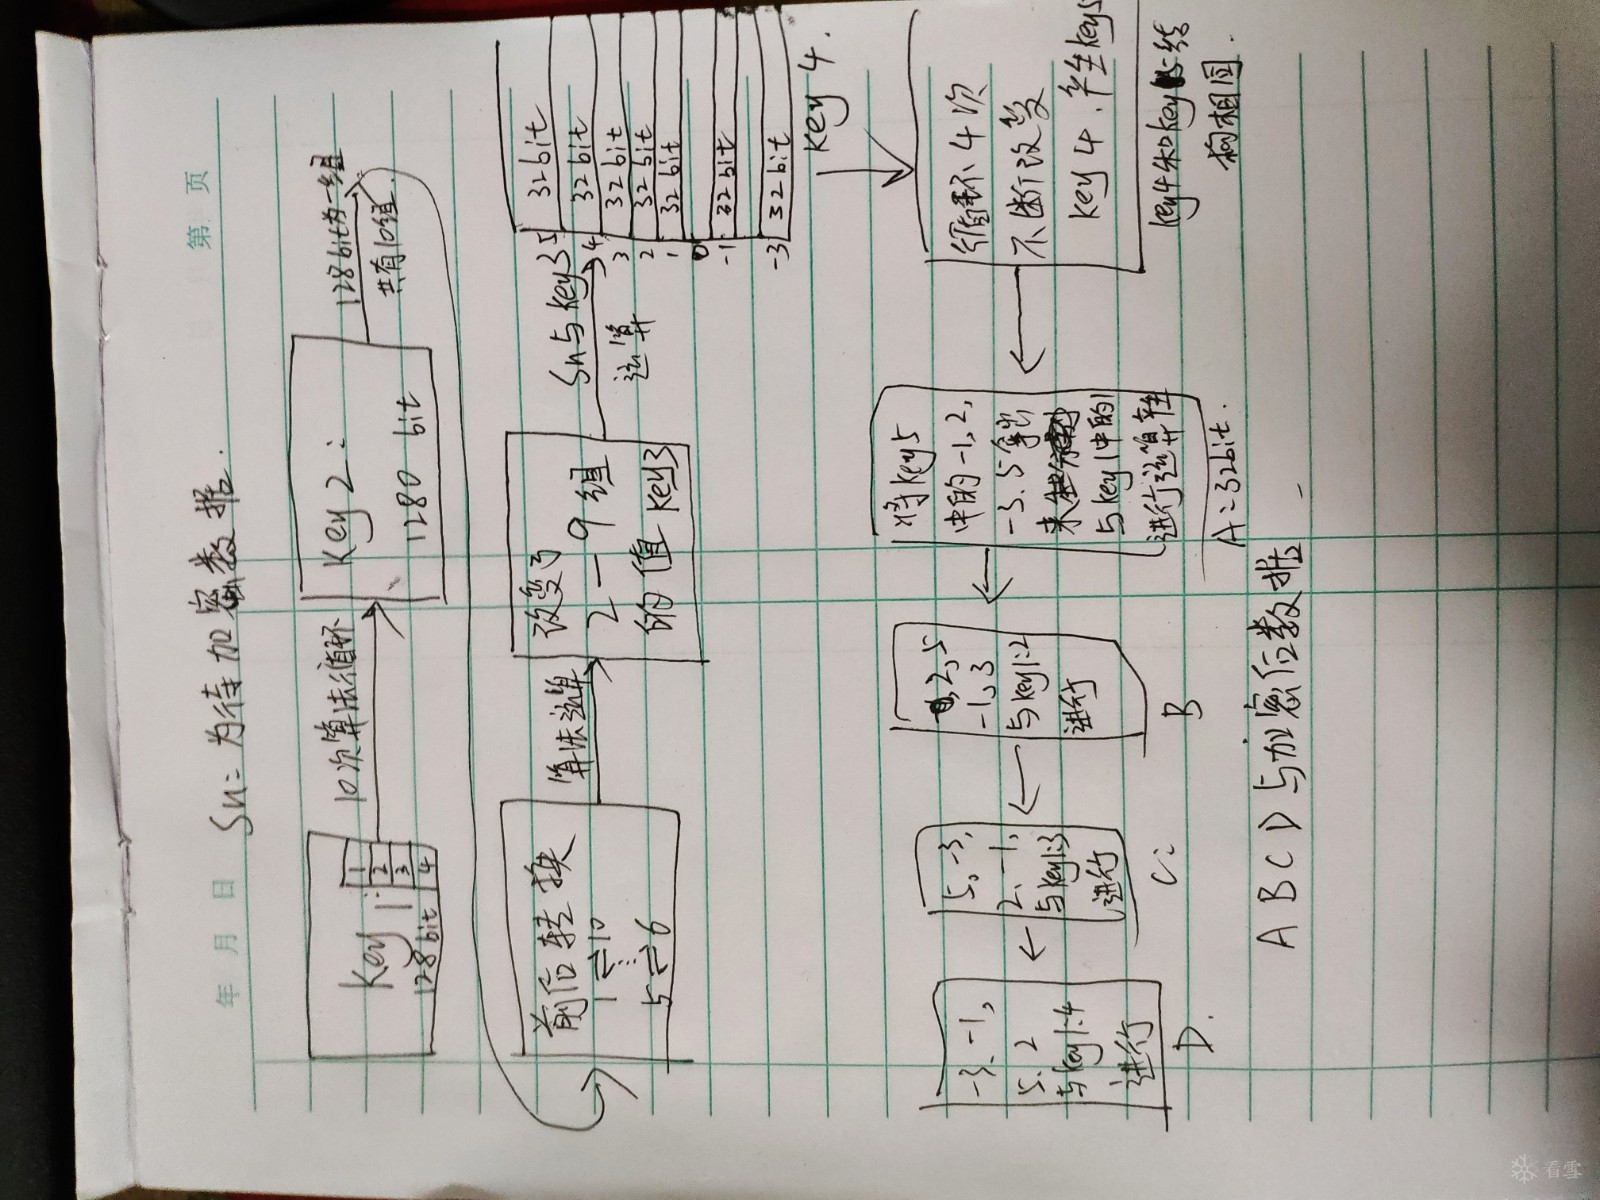 第 页
年 月 日
Sn: 为待加密数据.
Key 1
128bit
1
2
3
4
10次算法循环
Key 2:
1280 bit
128bit为一组
共有10组.
前后转换
1⇌10
⋮
5⇌6
算法运算
改变了
2—9组
的值 key3
Sn与key3
运算
5
4
3
2
1
0
-1
-3
32bit
32bit
32bit
32bit
32bit
32bit
32bit
key 4.
循环4次
不断改变
key 4.产生key5
key4和key5结
构相同
将key5
中的-1,2,
-3.5拿出
来
与key1中的1
进行运算
A=32bit.
2,5
-1,3
与key1:2
进行
B
5,-3,
2.-1,
与key1:3
进行
C:
-3.-1,
5.2
与key1:4
进行
D.
A B C D 与加密位数据
看雪